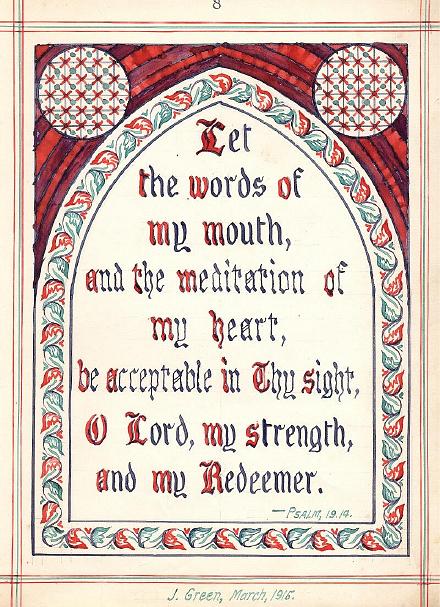 8
Let
the words of
my mouth,
and the meditation of
my heart,
be acceptable in Thy sight,
O Lord, my strength,
and my Redeemer.
—PSALM, 19.14.
J. Green, March, 1915.